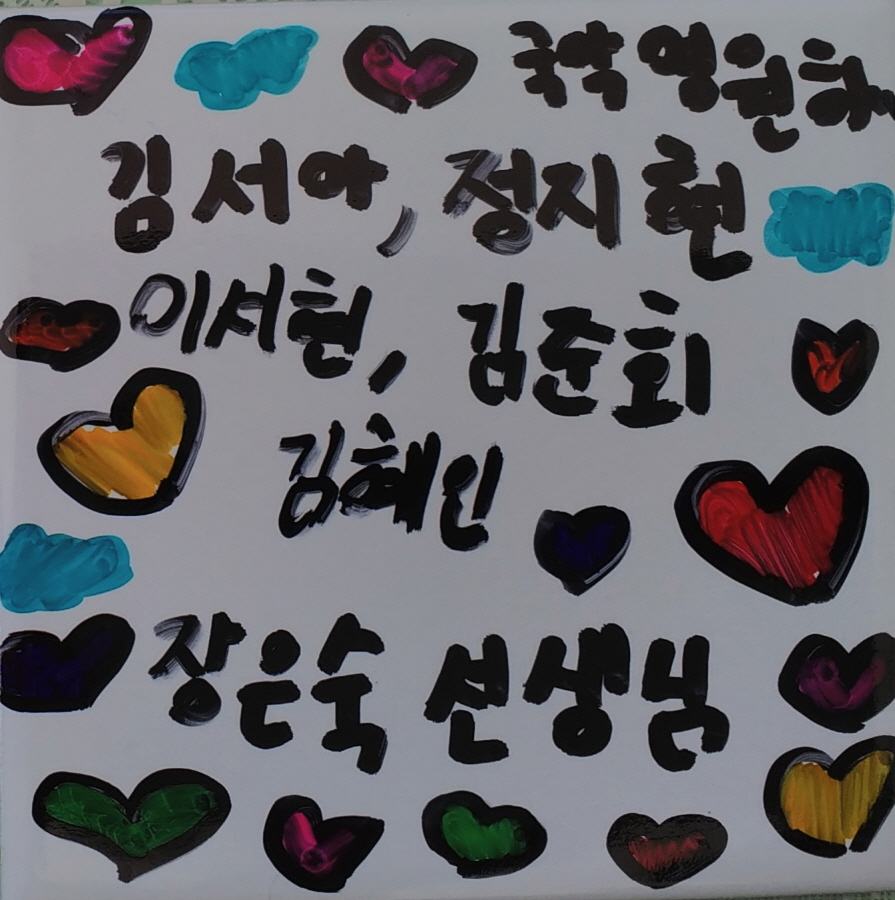 국악 영원해
김서아, 정지현
이서현, 김준회
김혜인
장은숙 선생님